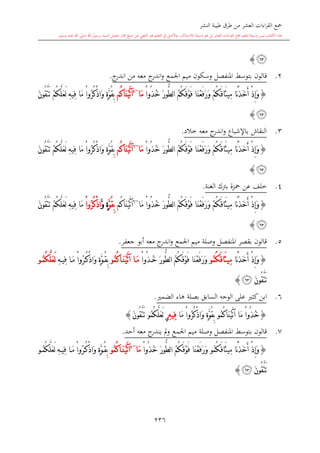 جمع القراءات العشر من طرق طيبة النشر
﴿٦٣﴾
٢. قالون بتوسط المنفصل وسكون ميم الجمع واندرج معه من اندرج.
﴿ وَإِذْ أَخَذْنَا مِيثَٰقَكُمْ وَرَفَعْنَا فَوْقَكُمُ ٱلطُّورَ خُذُوا۟ مَآ ءَاتَيْنَٰكُم بِقُوَّةٍ وَٱذْكُرُوا۟ مَا فِيهِ لَعَلَّكُمْ تَتَّقُونَ
﴿٦٣﴾
٣. النقاش بالإشباع واندرج معه خلاد.
﴿ وَإِذْ أَخَذْنَا مِيثَٰقَكُمْ وَرَفَعْنَا فَوْقَكُمُ ٱلطُّورَ خُذُوا۟ مَآ ءَاتَيْنَٰكُم بِقُوَّةٍ وَٱذْكُرُوا۟ مَا فِيهِ لَعَلَّكُمْ تَتَّقُونَ
﴿٦٣﴾
٤. خلف عن حمزة بترك الغنة.
﴿ وَإِذْ أَخَذْنَا مِيثَٰقَكُمْ وَرَفَعْنَا فَوْقَكُمُ ٱلطُّورَ خُذُوا۟ مَآ ءَاتَيْنَٰكُم بِقُوَّةٍ وَٱذْكُرُوا۟ مَا فِيهِ لَعَلَّكُمْ تَتَّقُونَ
﴿٦٣﴾
٥. قالون بقصر المنفصل وصلة ميم الجمع واندرج معه أبو جعفر.
﴿ وَإِذْ أَخَذْنَا مِيثَٰقَكُمُو وَرَفَعْنَا فَوْقَكُمُ ٱلطُّورَ خُذُوا۟ مَا ءَاتَيْنَٰكُمُو بِقُوَّةٍ وَٱذْكُرُوا۟ مَا فِيهِ لَعَلَّكُمُو
تَتَّقُونَ ﴿٦٣﴾
٦. ابن كثير على الوجه السابق بصلة هاء الضمير.
﴿ خُذُوا۟ مَا ءَاتَيْنَٰكُمُو بِقُوَّةٍ وَٱذْكُرُوا۟ مَا فِيهِۦ لَعَلَّكُمُو تَتَّقُونَ ﴾
٧. قالون بتوسط المنفصل وصلة ميم الجمع ولم يندرج معه أحد.
﴿ وَإِذْ أَخَذْنَا مِيثَٰقَكُمُو وَرَفَعْنَا فَوْقَكُمُ ٱلطُّورَ خُذُوا۟ مَآ ءَاتَيْنَٰكُمُو بِقُوَّةٍ وَٱذْكُرُوا۟ مَا فِيهِ لَعَلَّكُمُو
تَتَّقُونَ ﴿٦٣﴾
٢٣٦